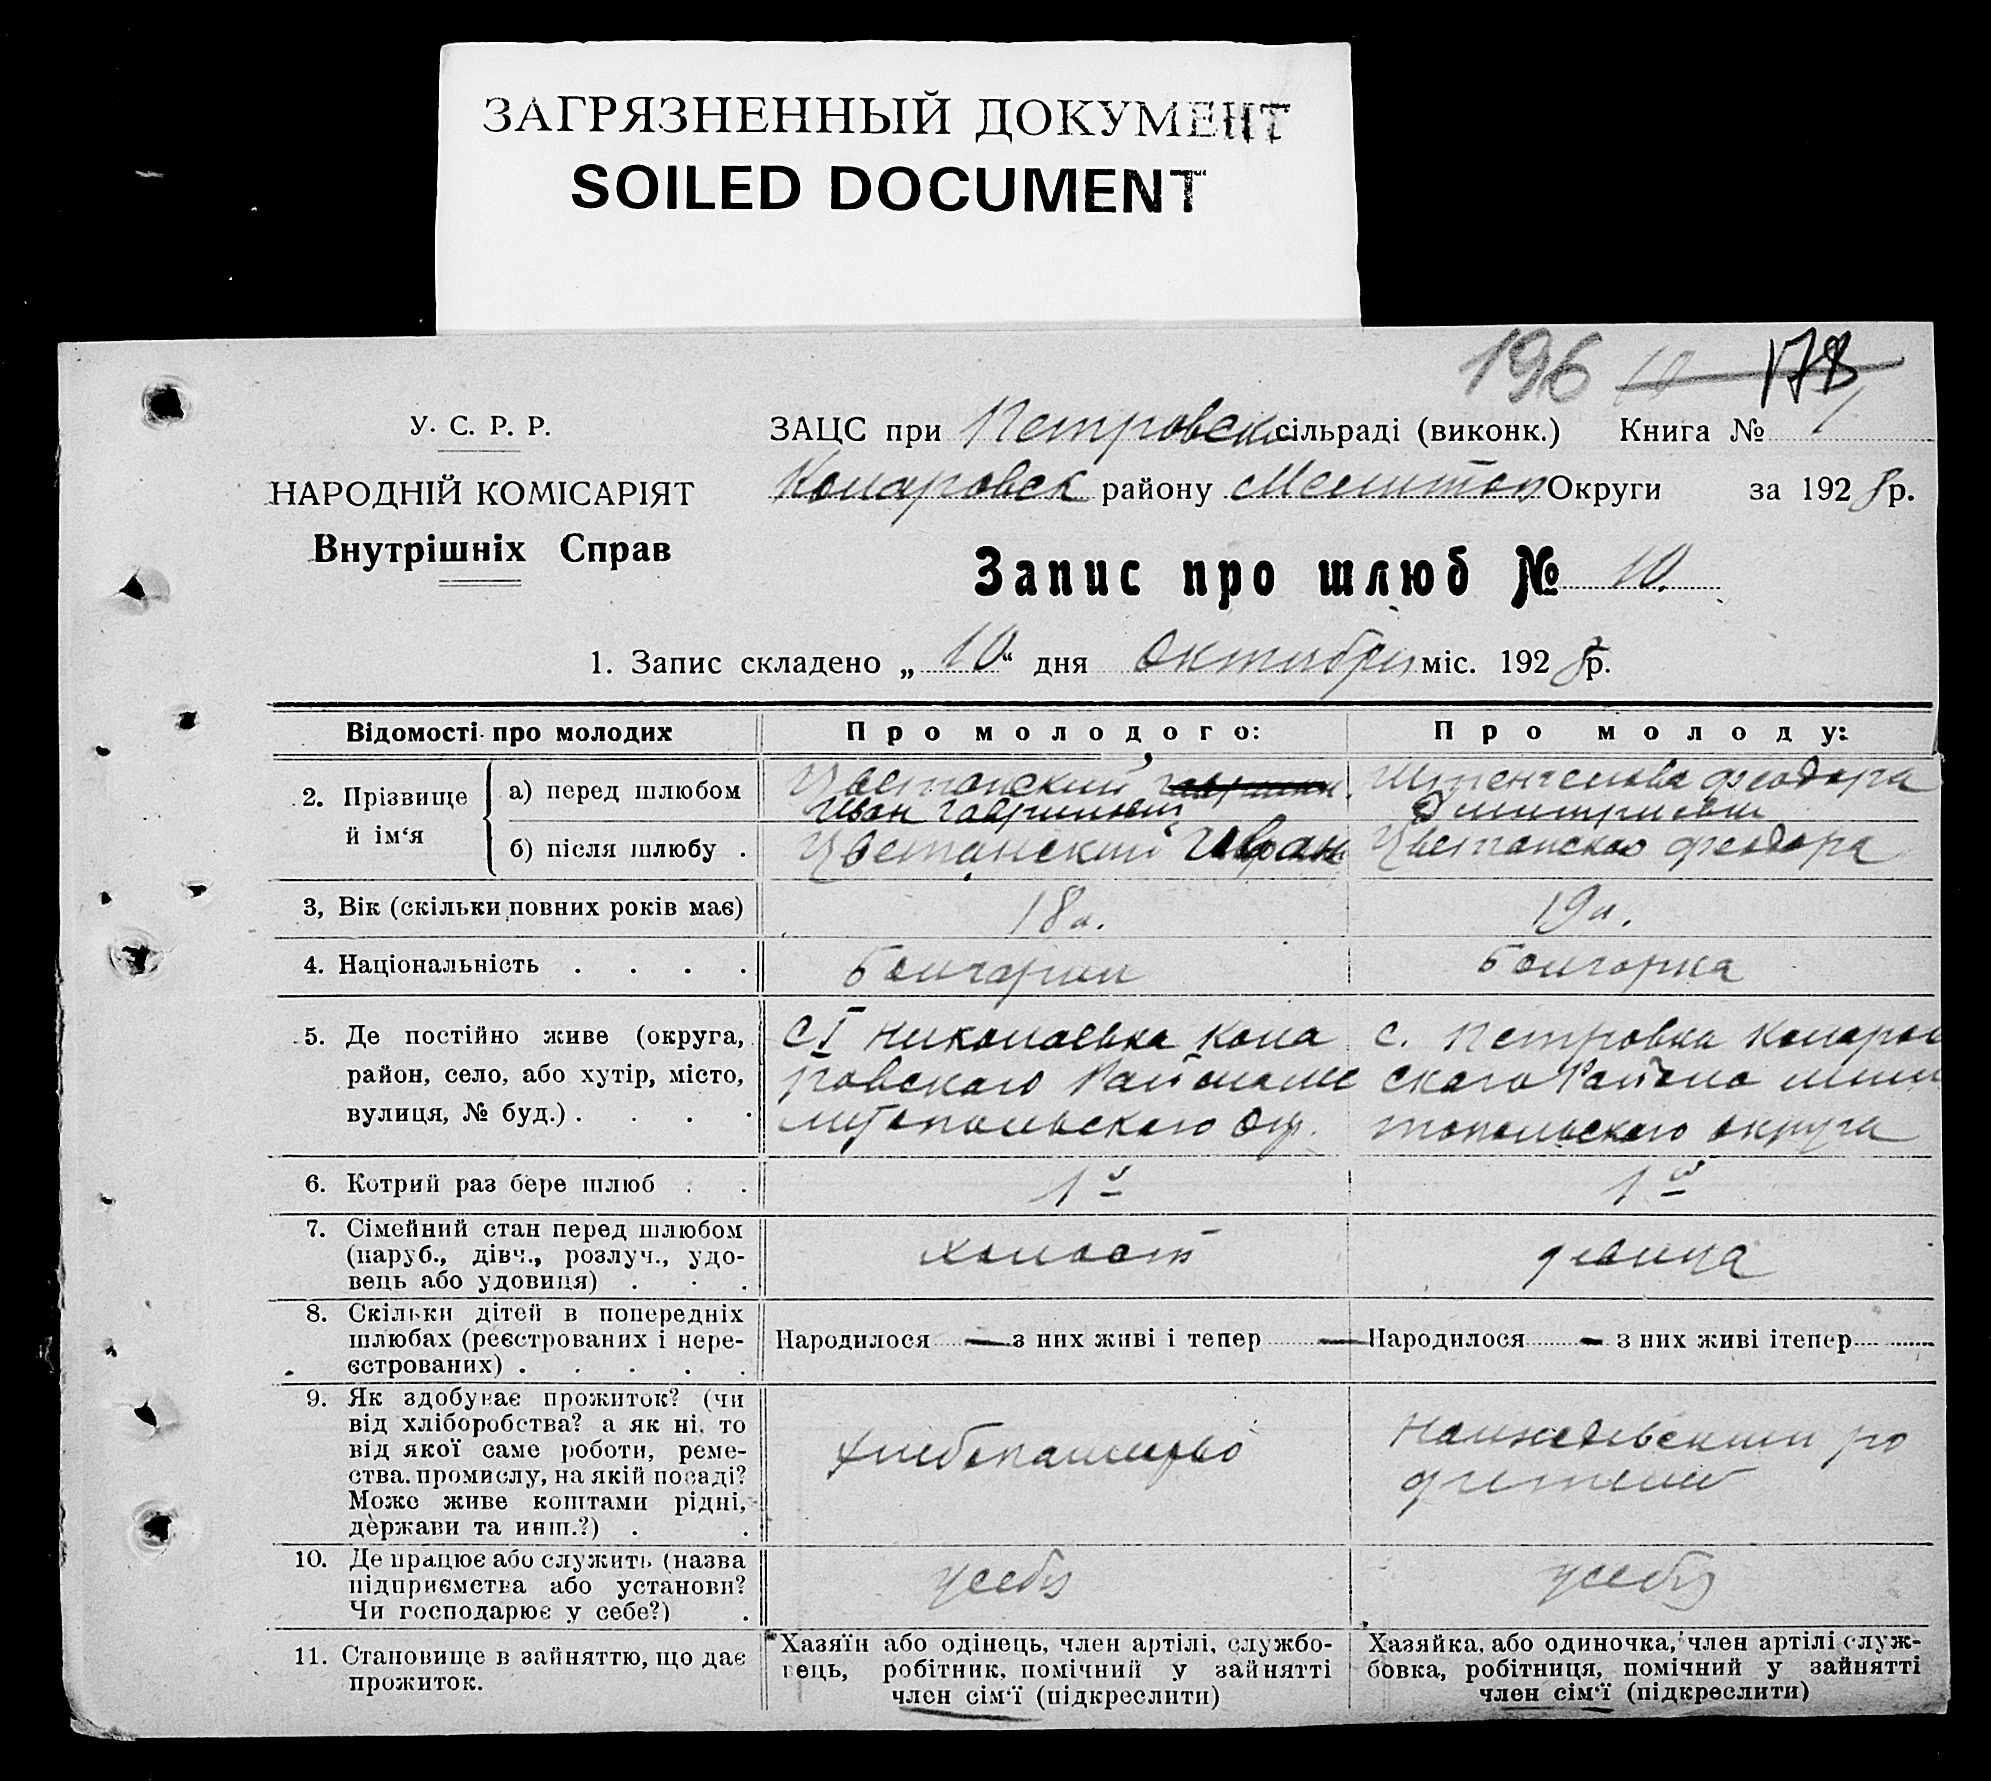 ЗАГРЯЗНЕННЫЙ ДОКУМЕНТ
SOILED DOCUMENT
196 10 178
У. С. Р. Р.
НАРОДНІЙ КОМІСАРІЯТ
Внутрішніх Справ
ЗАЦС при Петровско сільраді (виконк.) Книга № 1
Коларовск району Мелитоп Округи за 1928 р.
Запис про шлюб № 10.
1. Запис складено „10“ дня Октября міс. 1928 р.
Відомості про молодих
Про молодого:
Про молоду:
2. Прізвище й ім‘я
а) перед шлюбом
Цветанский
Иван Гаврилович
Феодора
Дмитриевна
б) після шлюбу .
Цветанский Иван
Цветанская Феодора
3, Вік (скільки повних років має)
18 л.
19 л.
4. Національність . . . .
Болгарин
Болгарка
5. Де постійно живе (округа,
район, село, або хутір, місто,
вулиця, № буд.) . . . .
С I Николаевка Кола
ровского Района Ме
литопольского Окр.
с. Петровка Коларов
ского Района Мели
топольского округа
6. Котрий раз бере шлюб . .
1й
1й
7. Сімейний стан перед шлюбом
(паруб., дівч., розлуч., удо-
вець або удовиця) . . .
холост
девица
8. Скільки дітей в попередніх
шлюбах (реєстрованих і нере-
єстрованих) . . . . .
Народилося — з них живі і тепер —
Народилося — з них живі ітепер
9. Як здобуває прожиток? (чи
від хліборобства? а як ні, то
від якої саме роботи, реме-
ства, промислу, на якій посаді?
Може живе коштами рідні,
держави та инш.?) . .
хлебопашество
На иждевении ро
дителей
10. Де працює або служить (назва
підприємства або установи?
Чи господарює у себе?) .
у себя
у себя
11. Становище в зайняттю, що дає
прожиток.
Хазяїн або одінець, член артілі, службо-
вець, робітник, помічний у зайнятті
член сім‘ї (підкреслити)
Хазяйка, або одиночка, член артілі служ-
бовка, робітниця, помічний у зайнятті
член сім‘ї (підкреслити)